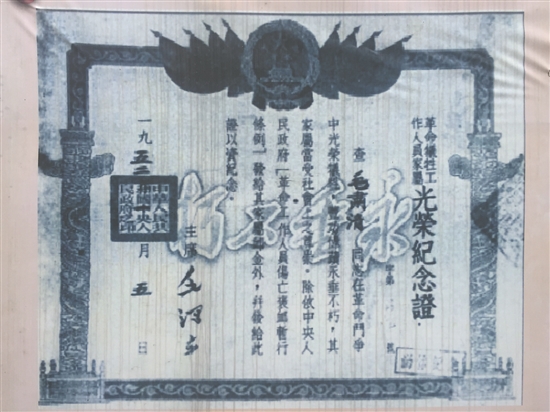 革命犧牲工
作人員家屬
光榮紀念證
字第 號
查毛 同志在革命鬥爭
中光榮犧牲，豐功偉績永垂不朽，其
家屬當受社會上之尊崇。除依中央人
民政府「革命工作人員傷亡褒卹暫行
條例」發給其家屬卹金外，並發給此
證以資紀念。
主席 毛澤東
一九五 月五日
中華人民共
和國中央人
民政府之印
永垂不朽